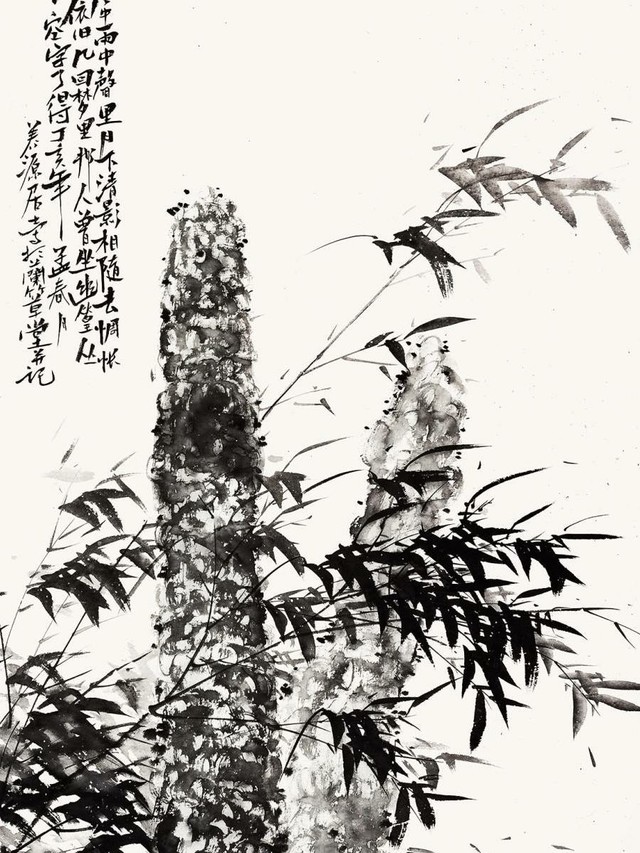 雨中聲里月下清影相随去惆怅
依旧几回梦里那人曾坐幽篁丛
空字了得丁亥年孟春月
源居於蘭堂并记